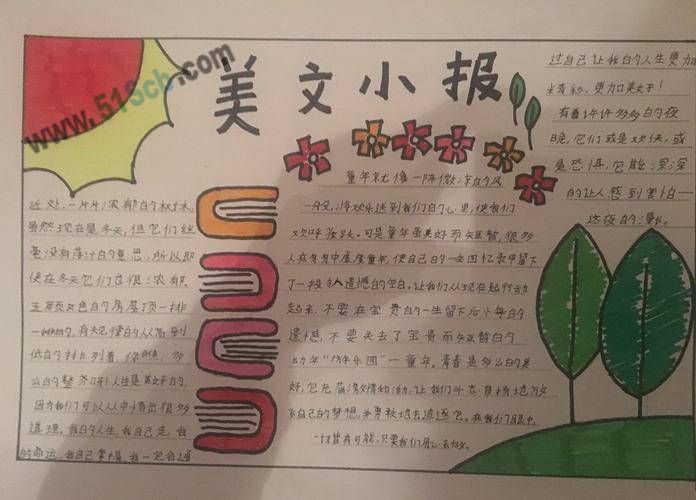 www.51Scb.com
美文小报
近处,一片片浓郁的树林,
虽然现在是冬天,但它们丝
毫没有落叶的意思,所以即
便在冬天它们也很浓郁.
五颜六色的房屋顶一排
一排的,有规律的从高到
低的排列着,你瞧,多
么的整齐啊!人生是美好的,
因为我们可以从中悟出很多
道理。我的人生,我自己走,我
的命运,我自己掌握,我一定会通
童年就像一阵微凉的风
一般,将欢乐送到我们的心里,使我们
欢呼雀跃。可是童年虽美好而短暂,很多
人在有声中度度童年,使自己的一生回忆录中留下
了一段令人遗憾的空白。让我们从现在起行动
起来,不要在宝贵的一生留下后悔的
遗憾,不要失去了宝贵而短暂的
幼年“游乐园”一童年。青春是多么的美
好,它充满激情和活力,让我们斗志昂扬地放
飞自己的梦想,并勇敢地去追逐它。在我们眼中
一切皆有可能,只要我们用心去做。
过自己让我的人生更加
精彩,更加美好!
有着许许多多的夜
晚,它们或是欢快,或
是恐惧,它能深深
的让人感到害怕一
这夜的漫长。